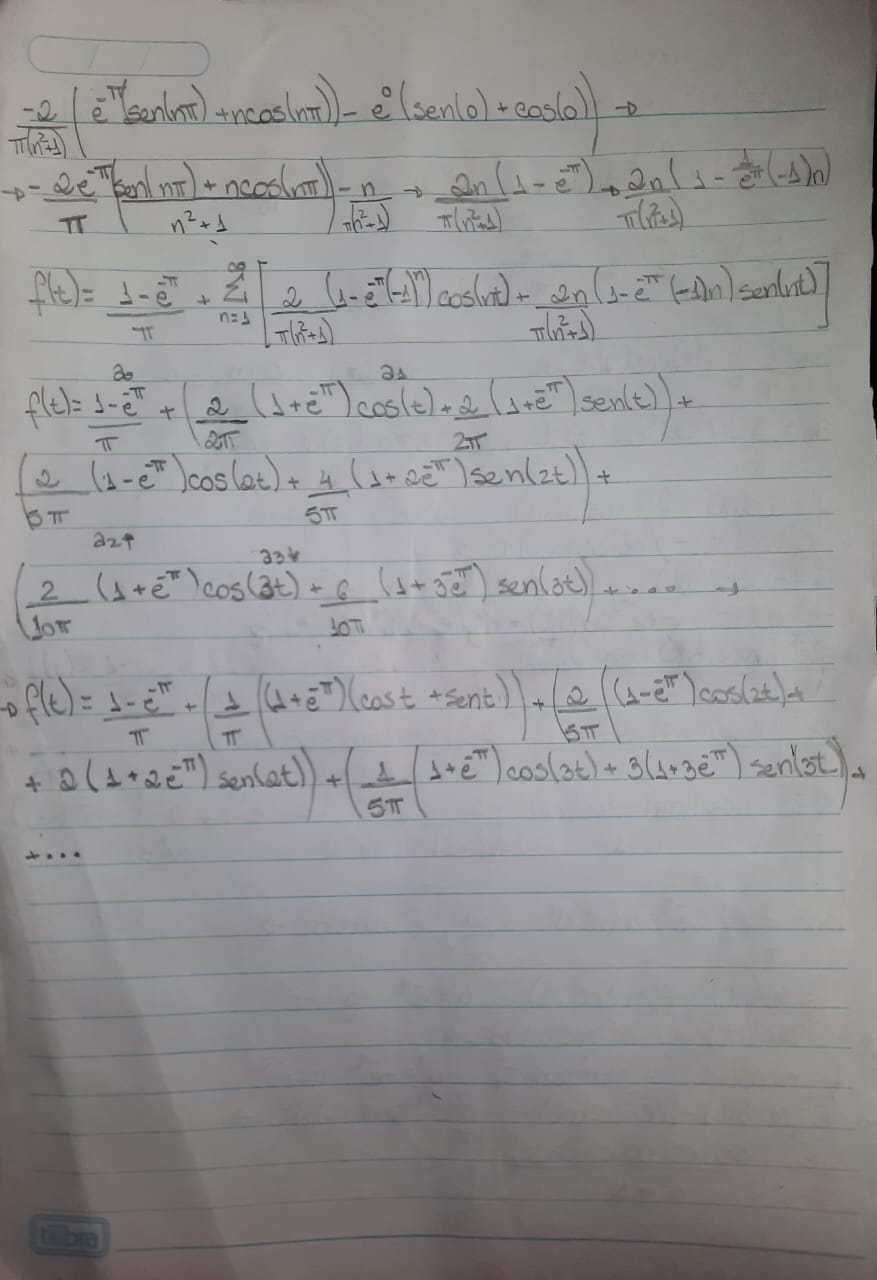 -2/π(n²+1) (e^-π(sen(nπ) + ncos(nπ)) - e⁰(sen(0) + cos(0)) →
→ -2e^-π/π (sen(nπ) + ncos(nπ)/n²+1) - n/π(n²+1) → 2n/π(n²+1) (1 - e^-π) → 2n/π(n²+1) (1 - 1/e^π (-1)n)
f(t) = 1-e^-π/π + ∞Σn=1 [2/π(n²+1) (1-e^-π(-1)^n) cos(nt) + 2n/π(n²+1) (1-e^-π (-1)n) sen(nt)]
a₀ a₁
f(t) = 1-e^-π/π + (2/2π (1+e^-π) cos(t) + 2/2π (1+e^-π) sen(t)) +
(2/5π (1-e^-π) cos(2t) + 4/5π (1+2e^-π) sen(2t)) +
a₂↑ a₃↓
(2/10π (1+e^-π) cos(3t) + 6/10π (1+3e^-π) sen(3t)) + .... →
→ f(t) = 1-e^-π/π + (1/π ((1+e^-π)(cost + sent)) + (2/5π ((1-e^-π) cos(2t) +
+ 2(1+2e^-π) sen(2t)) + (1/5π (1+e^-π) cos(3t) + 3(1+3e^-π) sen(3t)) +
+...
tilibra